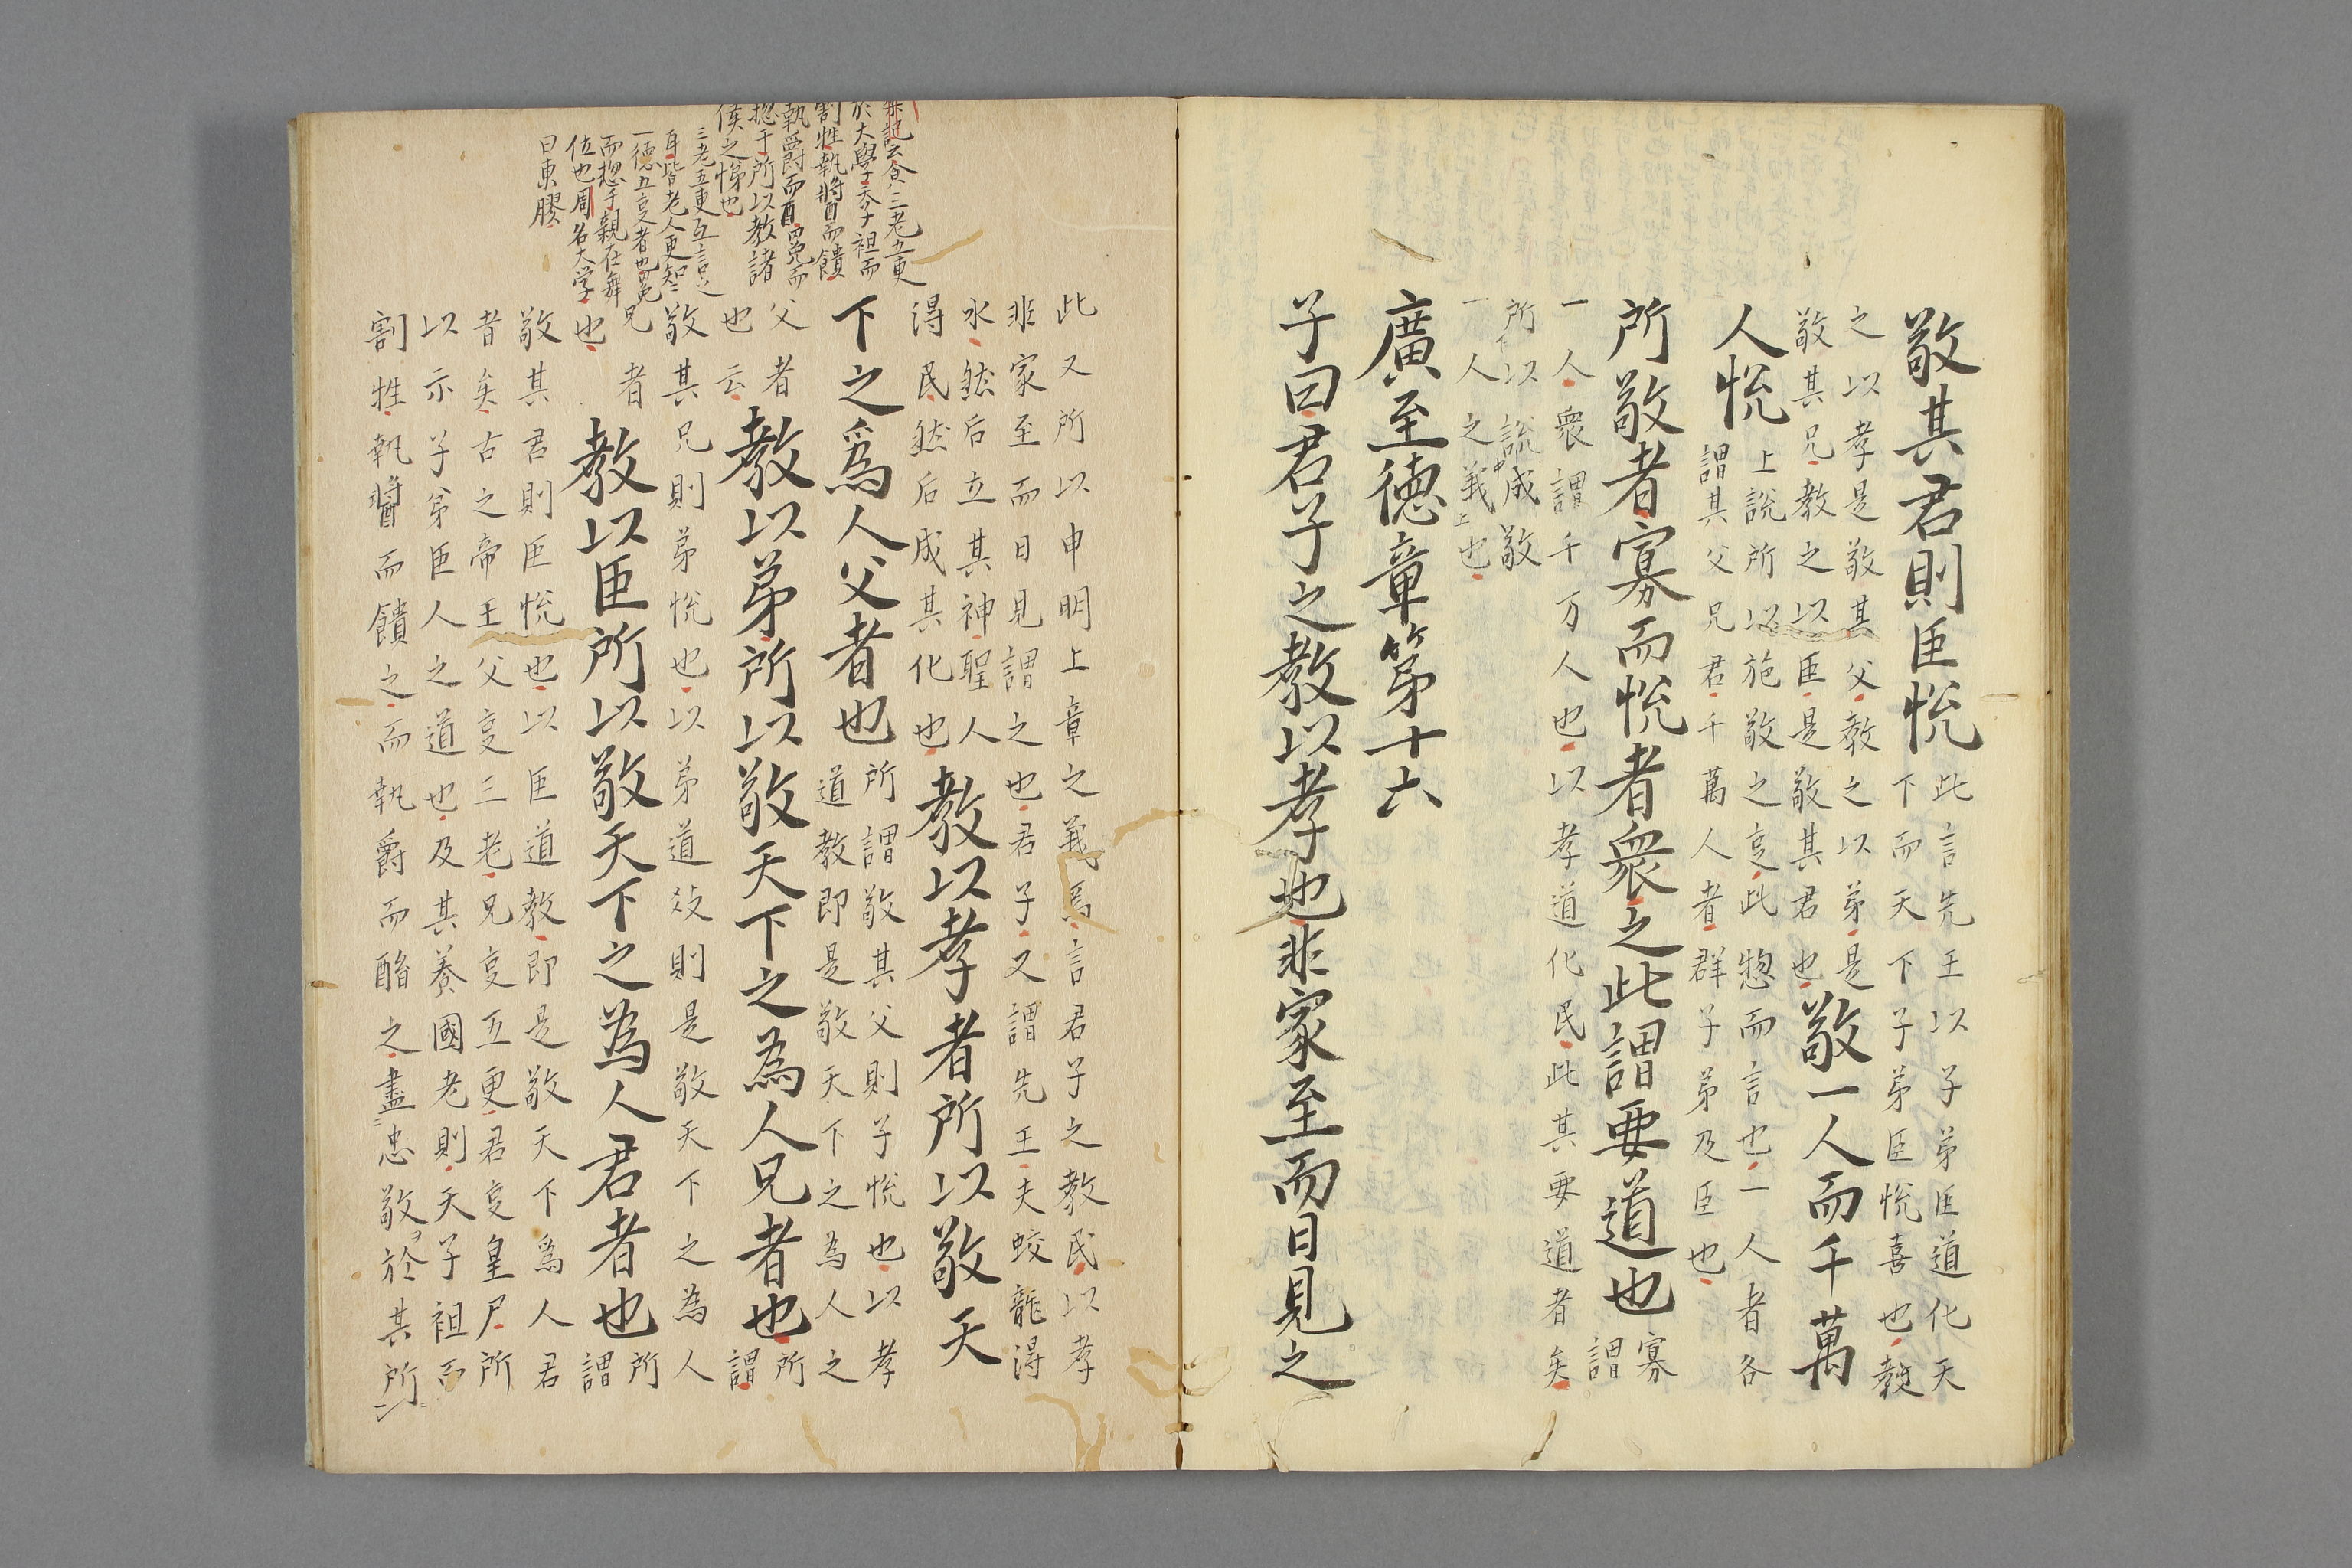 敬其君則臣悅
此言先王以子弟臣道化天
下而天下子弟臣悅喜也教
之以孝是敬其父教之以弟是
敬其兄教之以臣是敬其君也
敬一人而千萬
人悅
上說所以施敬之叓此惣而言也一人者各
謂其父兄君千萬人者群子弟及臣也
所敬者寡而悅者衆之此謂要道也
寡
謂
一人衆謂千万人也以孝道化民此其要道者矣
所以說成敬
一人之義也
廣至德章第十六
子曰君子之教以孝也非家至而日見之
禮記云食三老五更
於大學天子袒而
割牲執醬而饋
執爵而酳冕而
揔干所以教諸
侯之悌也
三老五更互言之
耳皆老人更知三
德五叓者也冕
而揔干親在舞
位也周名大学
曰東膠
此又所以申明上章之義焉言君子之教民以孝
非家至而日見謂之也君子又謂先王夫蛟龍得
水然后立其神聖人
得民然后成其化也
教以孝者所以敬天
下之爲人父者也
所謂敬其父則子悅也以孝
道教即是敬天下之為人之
父者
也云
教以弟所以敬天下之為人兄者也
所
謂
敬其兄則弟悅也以弟道教則是敬天下之為人
兄者
也
教以臣所以敬天下之為人君者也
所
謂
敬其君則臣悅也以臣道教即是敬天下爲人君
者矣古之帝王父叓三老兄叓五更君叓皇尸所
以示子弟臣人之道也及其養國老則天子袒而
割牲執醬而饋之而執爵而酳之盡忠敬於其所